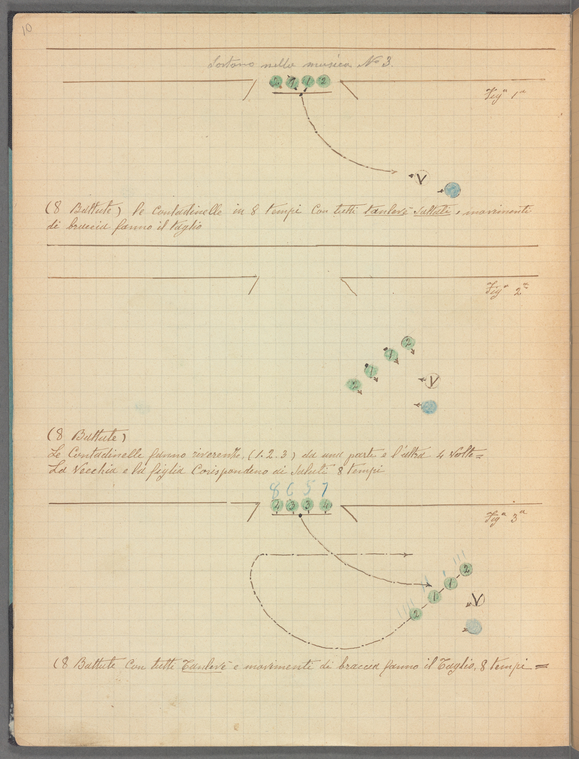 10
Sortono nella musica No 3.
2 1 1 2
Figa 1a
V
(8 Battute) le Contadinelle in 8 tempi Con tutti Saltati e movimenti
di braccia fanno il taglio
Figa 2a
2
1
1
2
V
(8 Battute)
Le Contadinelle fanno riverenze, (1.2.3) da una parte e l'altra 4 Volte =
La Vecchia e la figlia Corispondeno di Saluti 8 tempi
8 6 5 7
Figa 3a
2 1 1 2
V
(8 Battute Con tutti e movimenti di braccia fanno il Taglio. 8 tempi =